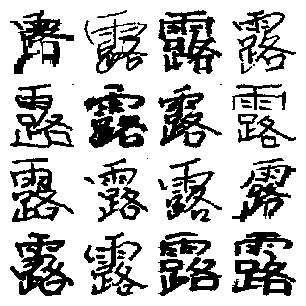 露露露露
露露露露
露露露露
露露露露